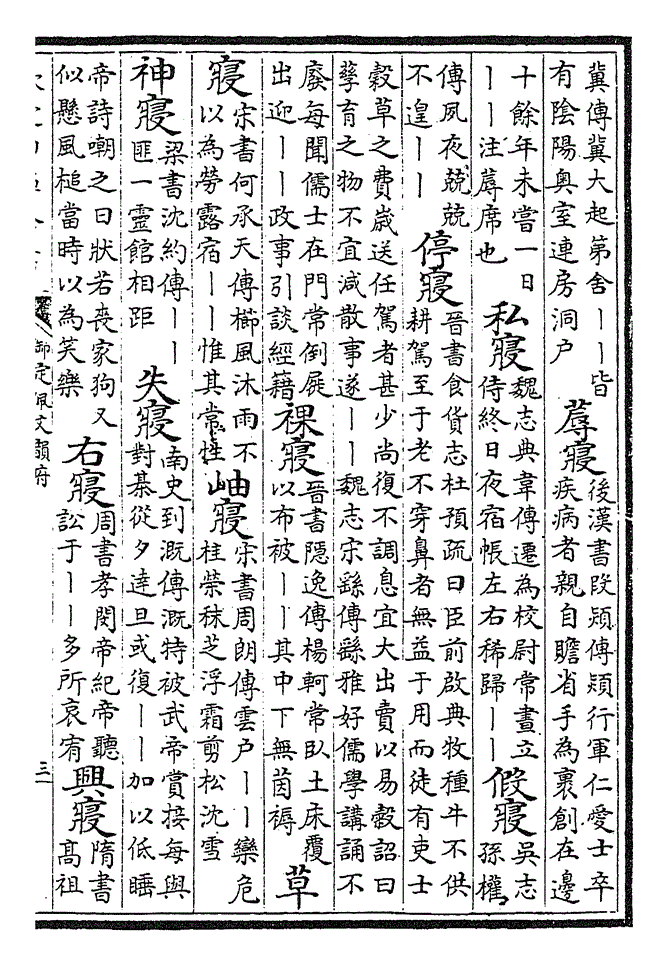 冀傳冀大起第舍丨丨皆有陰陽奥室連房洞户 蓐寢 後漢書段熲傳熲行軍仁愛士卒疾病者親自瞻省手為裹創在邊
十餘年未嘗一日丨丨注蓐席也 私寢 魏志典韋傳遷為校尉常晝立侍終日夜宿帳左右稀歸丨丨 假寢 吳志孫權
傳夙夜兢兢不遑丨丨 停寢 晉書食貨志杜預疏曰臣前啟典牧種牛不供耕駕至于老不穿鼻者無益于用而徒有吏士
穀草之費嵗送任駕者甚少尚復不調息宜大出賣以易穀詔曰孳育之物不宜減散事遂丨丨魏志宋繇傳繇雅好儒學講誦不
廢每聞儒士在門常倒屐出迎丨丨政事引談經籍 裸寢 晉書隠逸傳楊軻常卧土床覆以布被丨丨其中下無茵褥 草
寢 宋書何承天傳櫛風沐雨不以為勞露宿丨丨惟其常性 岫寢 宋書周朗傳雲户丨丨欒危桂榮秣芝浮霜剪松沈雪
神寢 梁書沈約傳丨丨匪一靈館相距 失寢 南史到溉傳溉特被武帝賞接每與對棊從夕達旦或復丨丨加以低睡
帝詩嘲之曰狀若喪家狗又似懸風槌當時以為笑樂 右寢 周書孝閔帝紀帝聽訟于丨丨多所哀宥 興寢 隋書髙祖
御定佩文韻府
三